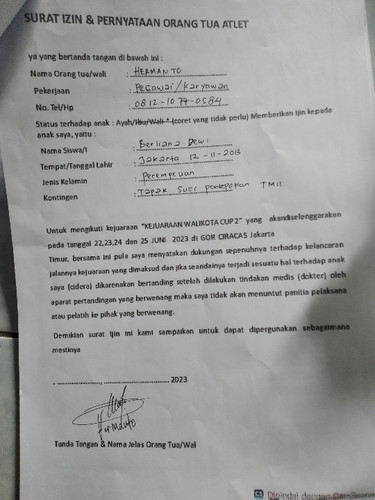 SURAT IZIN & PERNYATAAN ORANG TUA ATLET
ya yang bertanda tangan di bawah ini :
Nama Orang tua/wali : HERMANTO
Pekerjaan : Pegawai/Karyawan
No. Tel/Hp : 0812-1077-0584
Status terhadap anak : Ayah/Ibu/Wali * (coret yang tidak perlu) Memberikan Ijin kepada
anak saya, yaitu :
Nama Siswa/i : Berliana Dewi
Tempat/Tanggal Lahir : Jakarta 12-11-2013
Jenis Kelamin : Perempuan
Kontingen : Tapak Suci padepokan TMII
Untuk mengikuti kejuaraan "KEJUARAAN WALIKOTA CUP 2" yang akandiselenggarakan
pada tanggal 22,23,24 dan 25 JUNI 2023 di GOR CIRACAS Jakarta
Timur, bersama ini pula saya menyatakan dukungan sepenuhnya terhadap kelancaran
jalannya kejuaraan yang dimaksud dan jika seandainya terjadi sesuatu hal terhadap anak
saya (cidera) dikarenakan bertanding setelah dilakukan tindakan medis (dokter) oleh
aparat pertandingan yang berwenang maka saya tidak akan menuntut panitia pelaksana
atau pelatih ke pihak yang berwenang.
Demikian surat Ijin ini kami sampaikan untuk dapat dipergunakan sebagaimana
mestinya
........................, ........................ 2023
Hermanto
Tanda Tangan & Nama Jelas Orang Tua/Wal
CS Dipindai dengan CamScanner